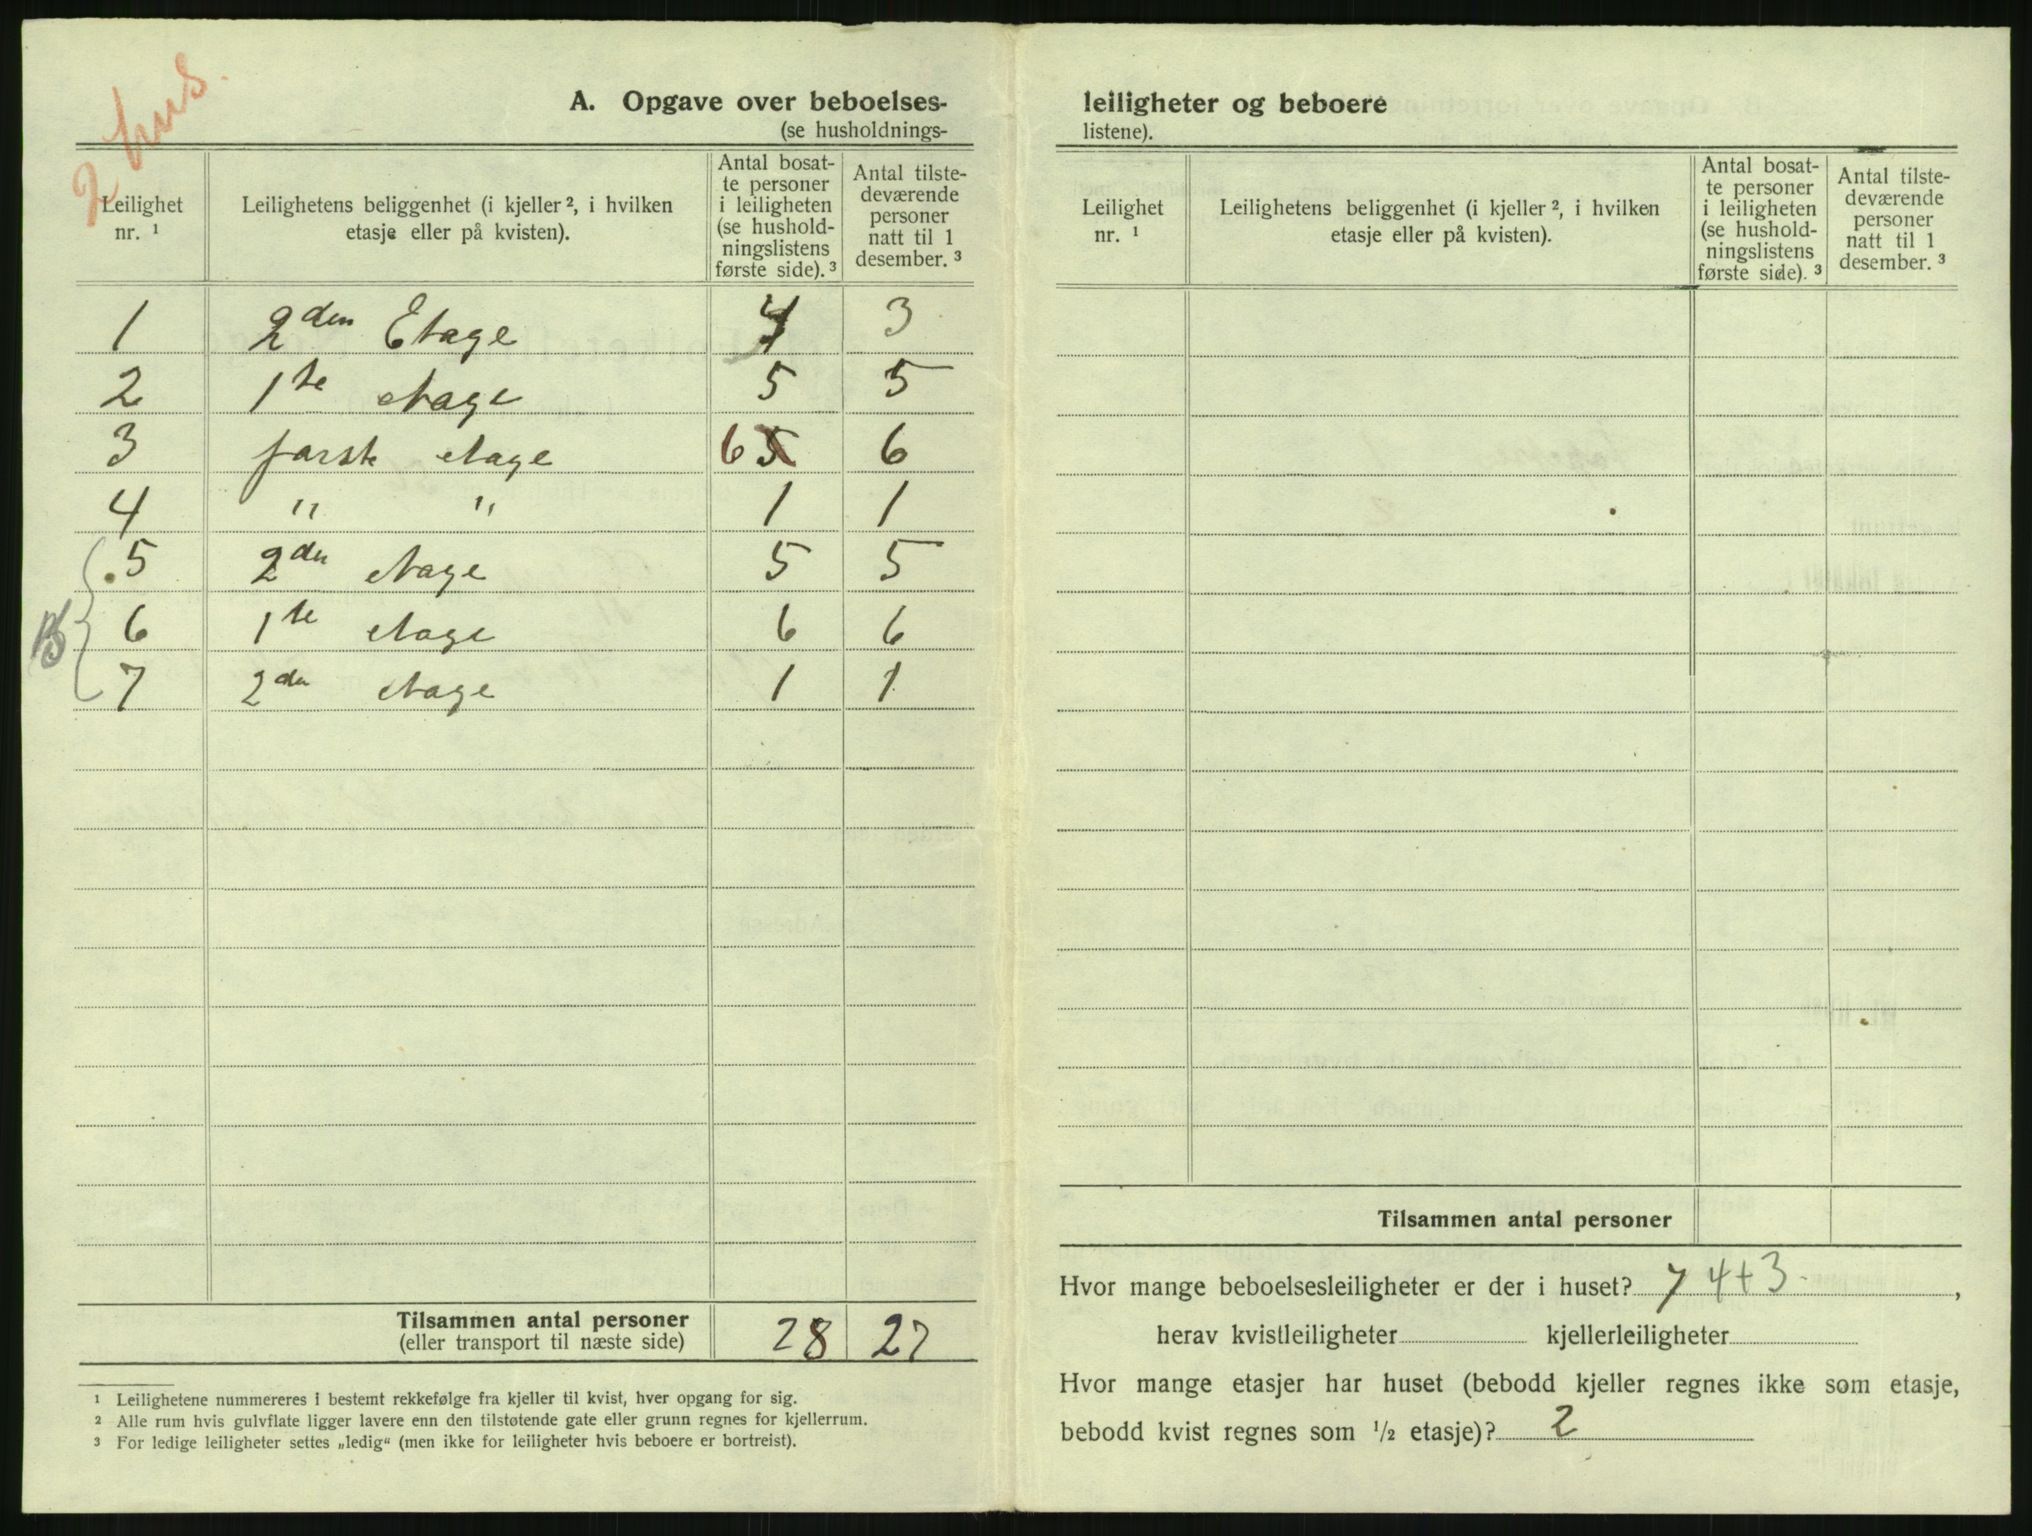 2 hus.
A. Opgave over beboelses-
(se husholdnings-
Leilighet nr. ¹
Leilighetens beliggenhet (i kjeller ², i hvilken etasje eller på kvisten).
Antal bosat-
te personer
i leiligheten
(se hushold-
ningslistens
første side). ³
Antal tilste-
deværende
personer
natt til 1
desember. ³
1 2den Etage 4 3
2 1ste etage 5 5
3 første etage 6 5 6
4 " " 1 1
5 2den etage 5 5
6 1ste etage 6 6
7 2den etage 1 1
B
Tilsammen antal personer 28 27
(eller transport til næste side)
¹ Leilighetene nummereres i bestemt rekkefølge fra kjeller til kvist, hver opgang for sig.
² Alle rum hvis gulvflate ligger lavere enn den tilstøtende gate eller grunn regnes for kjellerrum.
³ For ledige leiligheter settes „ledig“ (men ikke for leiligheter hvis beboere er bortreist).
leiligheter og beboere
listene).
Leilighet nr. ¹
Leilighetens beliggenhet (i kjeller ², i hvilken etasje eller på kvisten).
Antal bosat-
te personer
i leiligheten
(se hushold-
ningslistens
første side). ³
Antal tilste-
deværende
personer
natt til 1
desember. ³
Tilsammen antal personer
Hvor mange beboelsesleiligheter er der i huset? 7 4+3.,
herav kvistleiligheter kjellerleiligheter
Hvor mange etasjer har huset (bebodd kjeller regnes ikke som etasje,
bebodd kvist regnes som ½ etasje)? 2